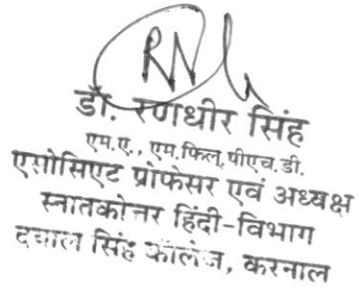 डॉ. रणधीर सिंह
एम.ए., एम.फिल, पीएच.डी.
एसोसिएट प्रोफेसर एवं अध्यक्ष
स्नातकोत्तर हिंदी-विभाग
दयाल सिंह कॉलेज, करनाल